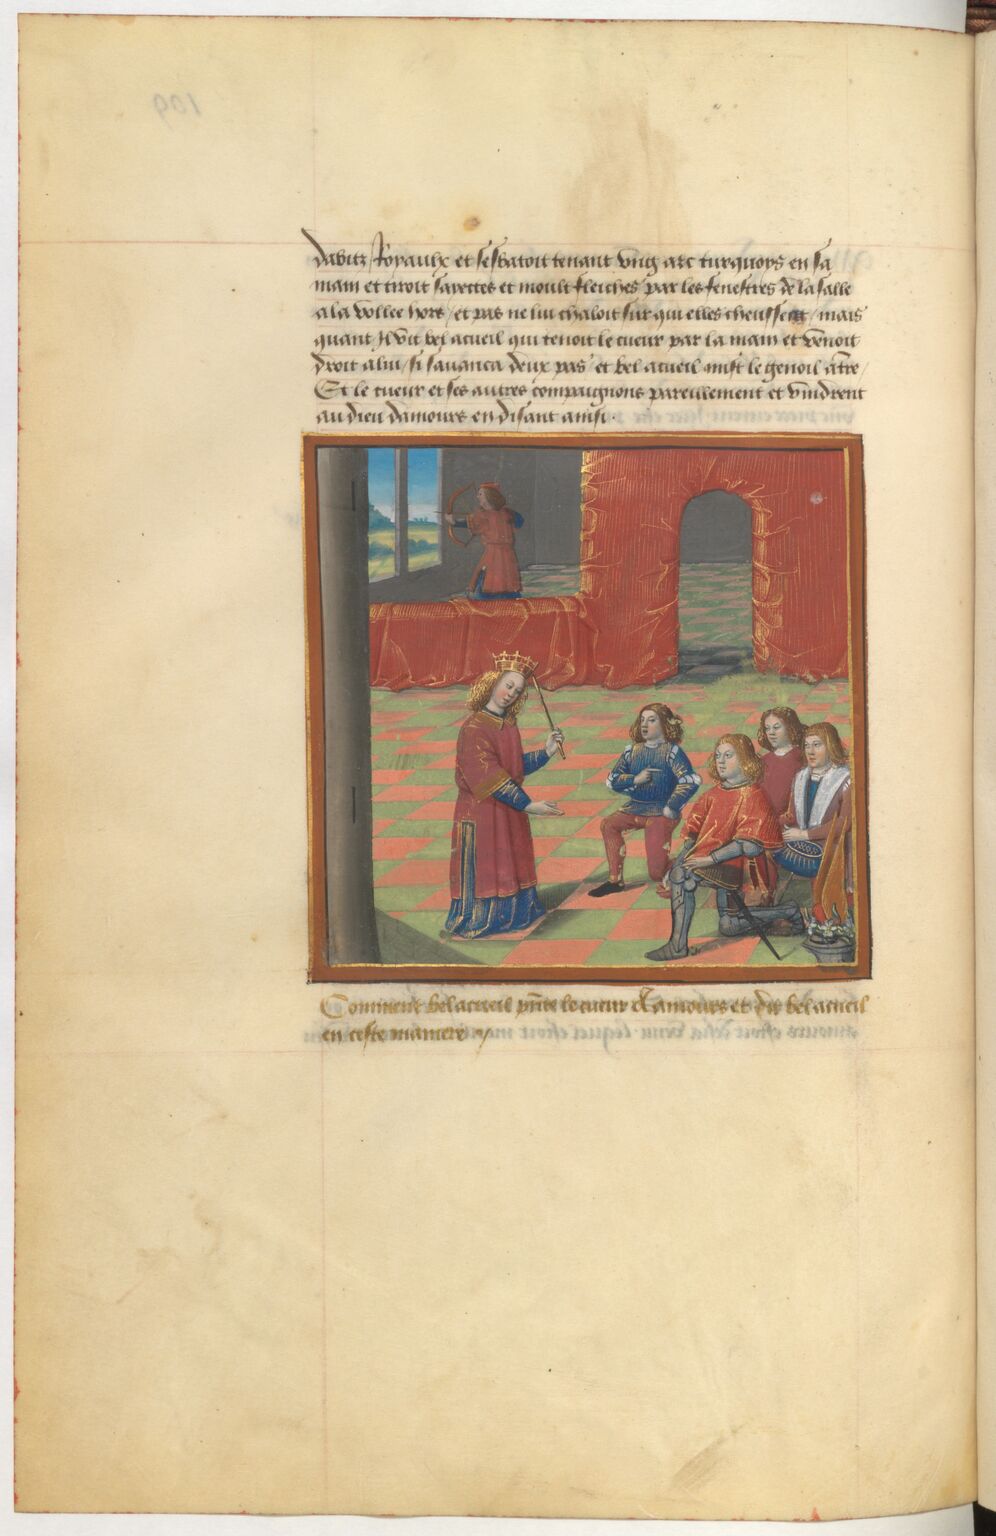 dabitz Royaulx et sesbatoit tenant ung arc turquoys en sa
main et tiroit sayettes et moult fleiches par les fenestres de la salle
a la vollee hors / et pas ne luy chaloit sur qui elles cheussent / mais
quant Il vit bel acueil qui tenoit le cueur par la main et venoit
droit a luy / si savanca deux pas / et bel acueil mist le genoil a tre /
Et le cueur et ses autres compaignons pareillement et vindrent
au dieu damours en disant ainsi .
Comment bel acueil pnte le cueur et dit bel acueil
en ceste maniere
109